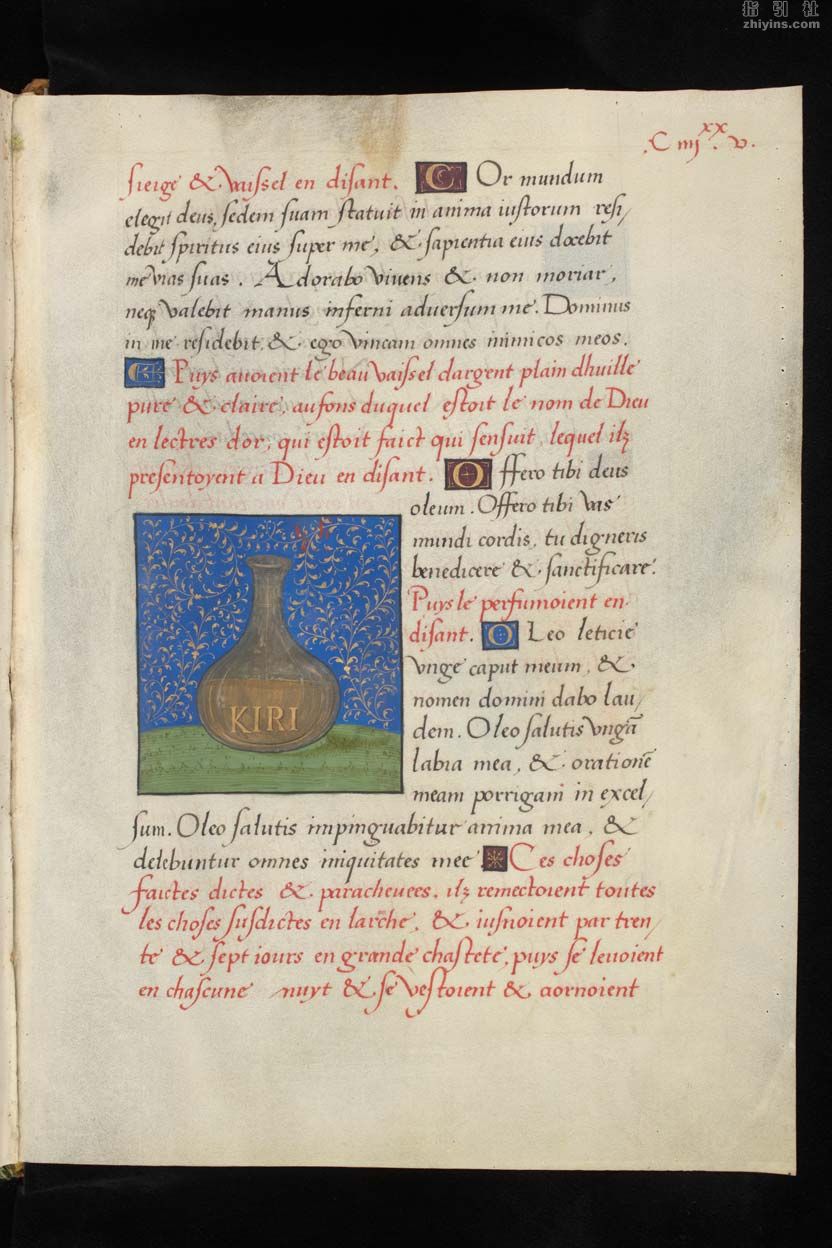 指引社
zhiyins.com
.C iiij xx. v.
sieige & vaissel en disant. C Or mundum
elegit deus, sedem suam statuit in anima iustorum resi/
debit spiritus eius super me, & sapientia eius docebit
me vias suas. Adorabo vivens & non moriar,
neq; valebit manus inferni adversum me. Dominus
in me residebit, & ego vincam omnes inimicos meos.
Puys avoient le beau vaissel dargent plain dhuille
pure & claire, au fons duquel estoit le nom de Dieu
en lectres dor, qui estoit faict qui sensuit, lequel ilz
presentoyent a Dieu en disant. O ffero tibi deus
oleum. Offero tibi vas
mundi cordis, tu digneris
benedicere & sanctificare.
Puys le perfumoient en
disant. O Leo leticie
vnge caput meum, &
nomen domini dabo lau/
dem. Oleo salutis vngā
labia mea, & orationē
meam porrigam in excel/
KIRI
sum. Oleo salutis impinguabitur anima mea, &
delebuntur omnes iniquitates mee. Ces choses
faictes dictes & parachevees, ilz remectoient toutes
les choses susdictes en larche, & iusnoient par tren/
te & sept iours en grande chastete, puys se levoient
en chascune nuyt & se vestoient & aornoient